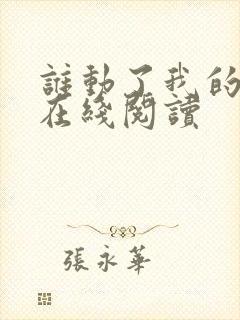 誰動了我的
在綫閱讀
張永華